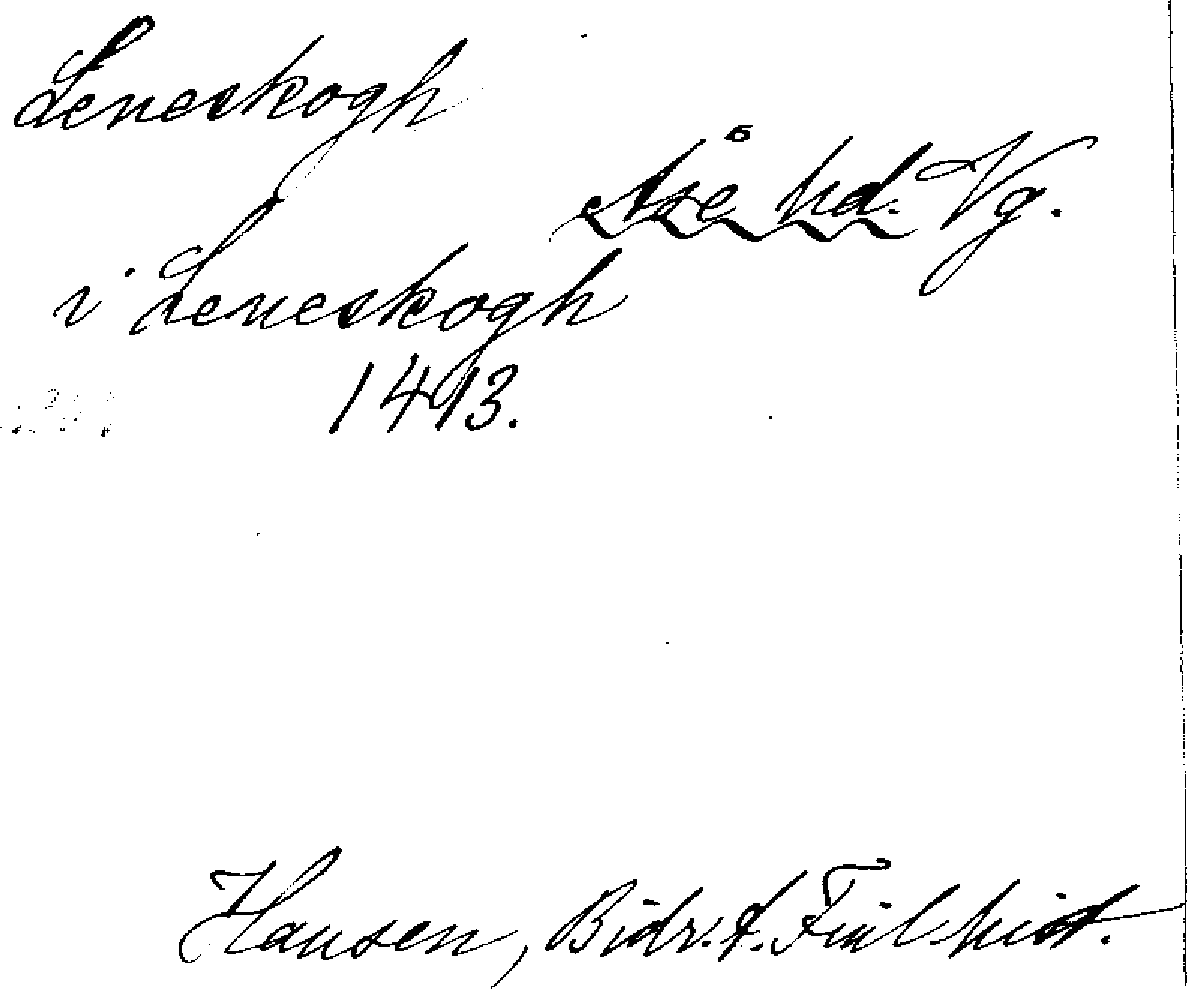 Leneskogh
Åse hd. Vg.
i Leneskogh
1413.
Hausen, Bidr. t. Finl. hist.